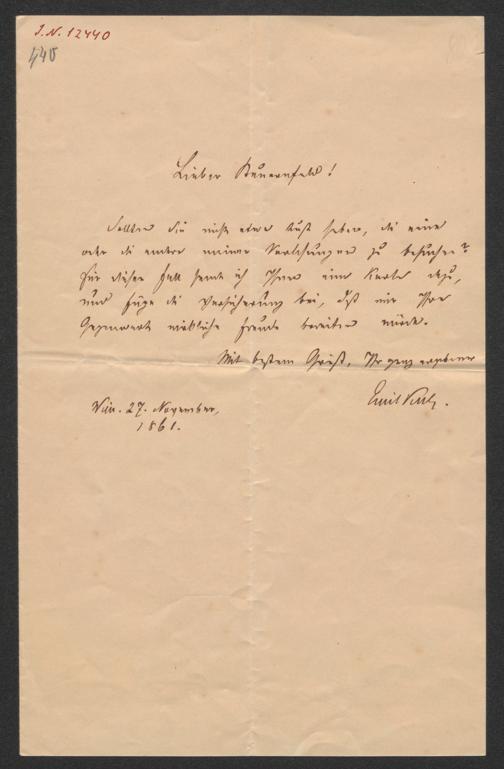 I.N. 12440
440
Lieber Bauernfeld!
Sollten Sie nicht etwa Lust haben, die eine
oder die andere meiner Vorlesungen zu besuchen?
Für diesen Fall sende ich Ihnen eine Karte dazu,
und füge die Versicherung bei, daß mir Ihre
Gegenwart wirkliche Freude bereiten würde.
Mit bestem Gruß, Ihr ganz ergebener
Emil Kuh.
Wien. 27. November,
1861.